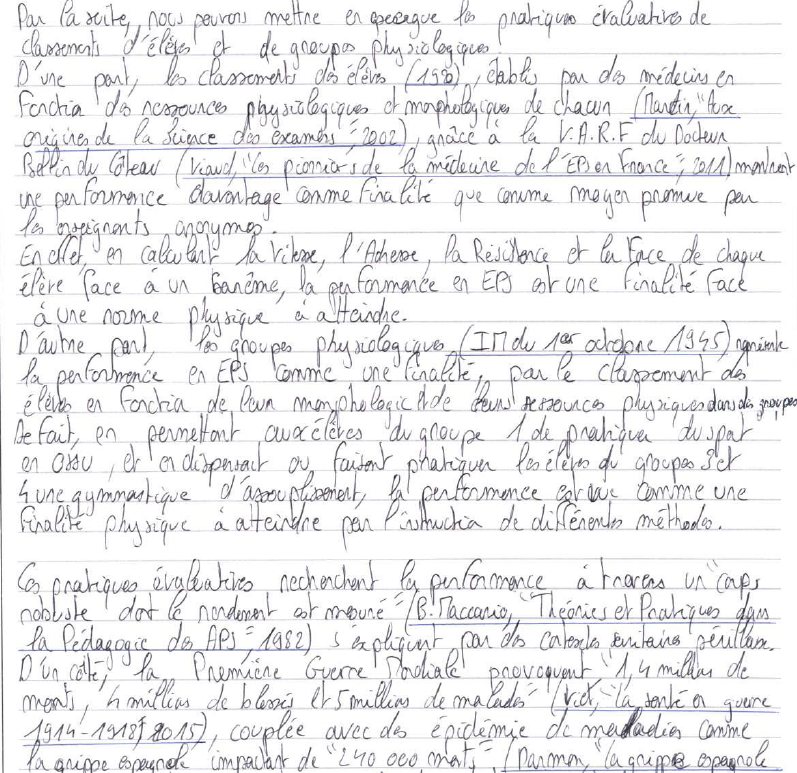 Par la suite, nous pouvons mettre en exergue les pratiques évaluatives de
classements d'élèves et de groupes physiologiques.
D'une part, les classements des élèves (1920), établis par des médecins en
Fonction des ressources physiologiques et morphologiques de chacun (Martin, "Aux
origines de la Science des examens", 2002), grâce à la V.A.R.F du Docteur
Bellin du Côteau (Viaud, "Les pionniers de la médecine de l'EPS en France", 2011) montrent
une performance davantage comme finalité que comme moyen promue par
les enseignants anonymes.
En effet, en calculant la Vitesse, l'Adresse, la Résistance et la Force de chaque
élève face à un barème, la performance en EPS est une finalité face
à une norme physique à atteindre.
D'autre part, les groupes physiologiques (IM du 1er octobre 1945) représente
la performance en EPS comme une finalité, par le classement des
élèves en fonction de leur morphologie et de leurs ressources physiques dans des groupes
De fait, en permettant aux élèves du groupe 1 de pratiquer du sport
en ASSU, et en dispensant ou faisant pratiquer les élèves du groupes 3 et
4 une gymnastique d'assouplissement, la performance est vue comme une
finalité physique à atteindre par l'instruction de différentes méthodes.
Ces pratiques évaluatives recherchent la performance à travers un "corps
robuste dont le rendement est mesuré" (B. Maccario, "Théories et Pratiques dans
la Pédagogie des APS", 1982) s'expliquent par des contextes sanitaires périlleux.
D'un côté, la Première Guerre Mondiale provoquent "1,4 million de
morts, 4 millions de blessés et 5 millions de malades" (Viet, "la santé en guerre
1914-1918", 2015), couplée avec des épidémie de maladies comme
la grippe espagnole impactant de "240 000 morts" (Darmon, "la grippe espagnole